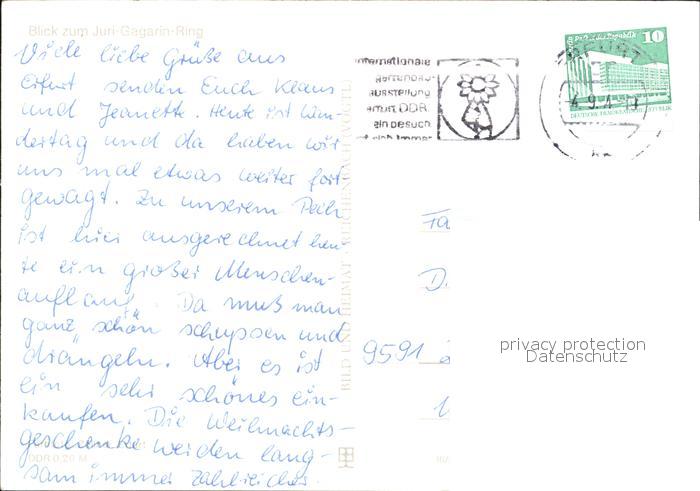 Blick zum Juri-Gagarin-Ring
Viele liebe Grüße aus
Erfurt senden Euch Klaus
und Jeanette. Heute ist Wan-
dertag und da haben wir
uns mal etwas weiter fort-
gewagt. Zu unserem Pech
ist hier ausgerechnet heu-
te ein großer Menschen-
auflauf. Da muß man
ganz schön schupsen und
drängeln. Aber es ist
ein sehr schönes ein-
kaufen. Die Weihnachts-
geschenke werden lang-
sam immer zahlreicher.
DDR 0,20 M
BILD UND HEIMAT
internationale
gartenbau-
ausstellung
erfurt DDR.
ein besuch
ERFURT
4.9.
10
DEUTSCHE DEMOKRATISCHE REPUBLIK
Fa
D.
9591
privacy protection
Datenschutz